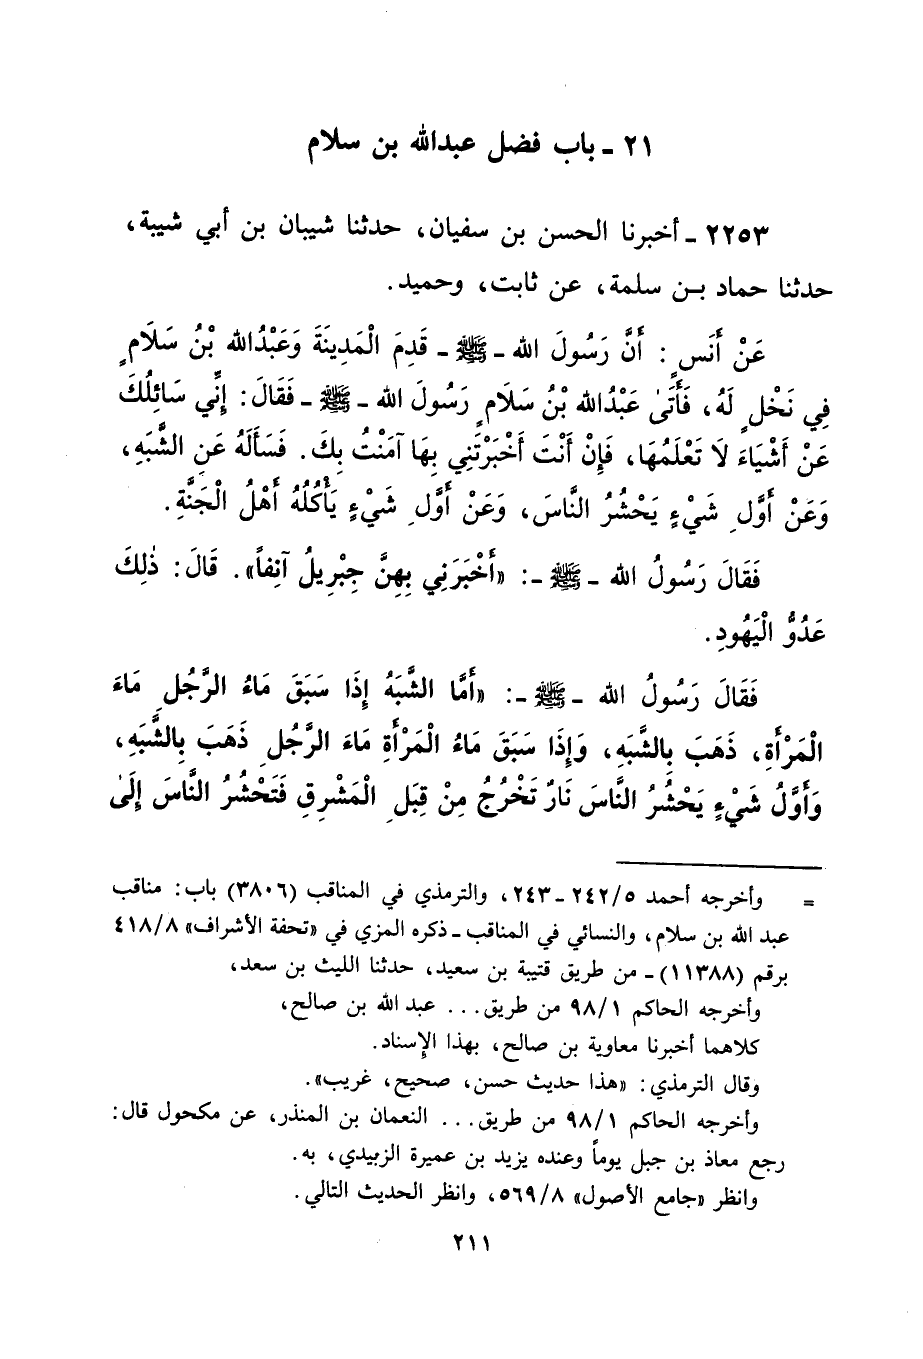 ٢١ ـ باب فضل عبدالله بن سلام
٢٢٥٣ ـ أخبرنا الحسن بن سفيان، حدثنا شيبان بن أبي شيبة،
حدثنا حماد بـن سلمة، عن ثابت، وحميد.
عَنْ أَنَسٍ: أَنَّ رَسُولَ الله ـ ﷺ ـ قَدِمَ الْمَدِينَةَ وَعَبْدُالله بْنُ سَلَامٍ
فِي نَخْلٍ لَهُ، فَأَتَىٰ عَبْدُالله بْنُ سَلَامٍ رَسُولَ الله ـ ﷺ ـ فَقَالَ: إِنِّي سَائِلُكَ
عَنْ أَشْيَاءَ لَا تَعْلَمُهَا، فَإِنْ أَنْتَ أَخْبَرْتَنِي بِهَا آمَنْتُ بِكَ. فَسَأَلَهُ عَنِ الشَّبَهِ،
وَعَنْ أَوَّلِ شَيْءٍ يَحْشُرُ النَّاسَ، وَعَنْ أَوَّلِ شَيْءٍ يَأْكُلُهُ أَهْلُ الْجَنَّةِ.
فَقَالَ رَسُولُ الله ـ ﷺ ـ: «أَخْبَرَنِي بِهِنَّ جِبْرِيلُ آنِفاً». قَالَ: ذٰلِكَ
عَدُوُّ الْيَهُودِ.
فَقَالَ رَسُولُ الله ـ ﷺ ـ: «أَمَّا الشَّبَهُ إِذَا سَبَقَ مَاءُ الرَّجُلِ مَاءَ
الْمَرْأَةِ، ذَهَبَ بِالشَّبَهِ، وَإِذَا سَبَقَ مَاءُ الْمَرْأَةِ مَاءَ الرَّجُلِ ذَهَبَ بِالشَّبَهِ،
وَأَوَّلُ شَيْءٍ يَحْشُرُ النَّاسَ نَارٌ تَخْرُجُ مِنْ قِبَلِ الْمَشْرِقِ فَتَحْشُرُ النَّاسَ إِلَىٰ
= وأخرجه أحمد ٢٤٢/٥ ـ ٢٤٣، والترمذي في المناقب (٣٨٠٦) باب: مناقب
عبد الله بن سلام، والنسائي في المناقب ـ ذكره المزي في «تحفة الأشراف» ٤١٨/٨
برقم (١١٣٨٨) ـ من طريق قتيبة بن سعيد، حدثنا الليث بن سعد،
وأخرجه الحاكم ٩٨/١ من طريق... عبد الله بن صالح،
كلاهما أخبرنا معاوية بن صالح، بهذا الإسناد.
وقال الترمذي: «هذا حديث حسن، صحيح، غريب».
وأخرجه الحاكم ٩٨/١ من طريق... النعمان بن المنذر، عن مكحول قال:
رجع معاذ بن جبل يوماً وعنده يزيد بن عميرة الزبيدي، به.
وانظر «جامع الأصول» ٥٦٩/٨، وانظر الحديث التالي.
٢١١